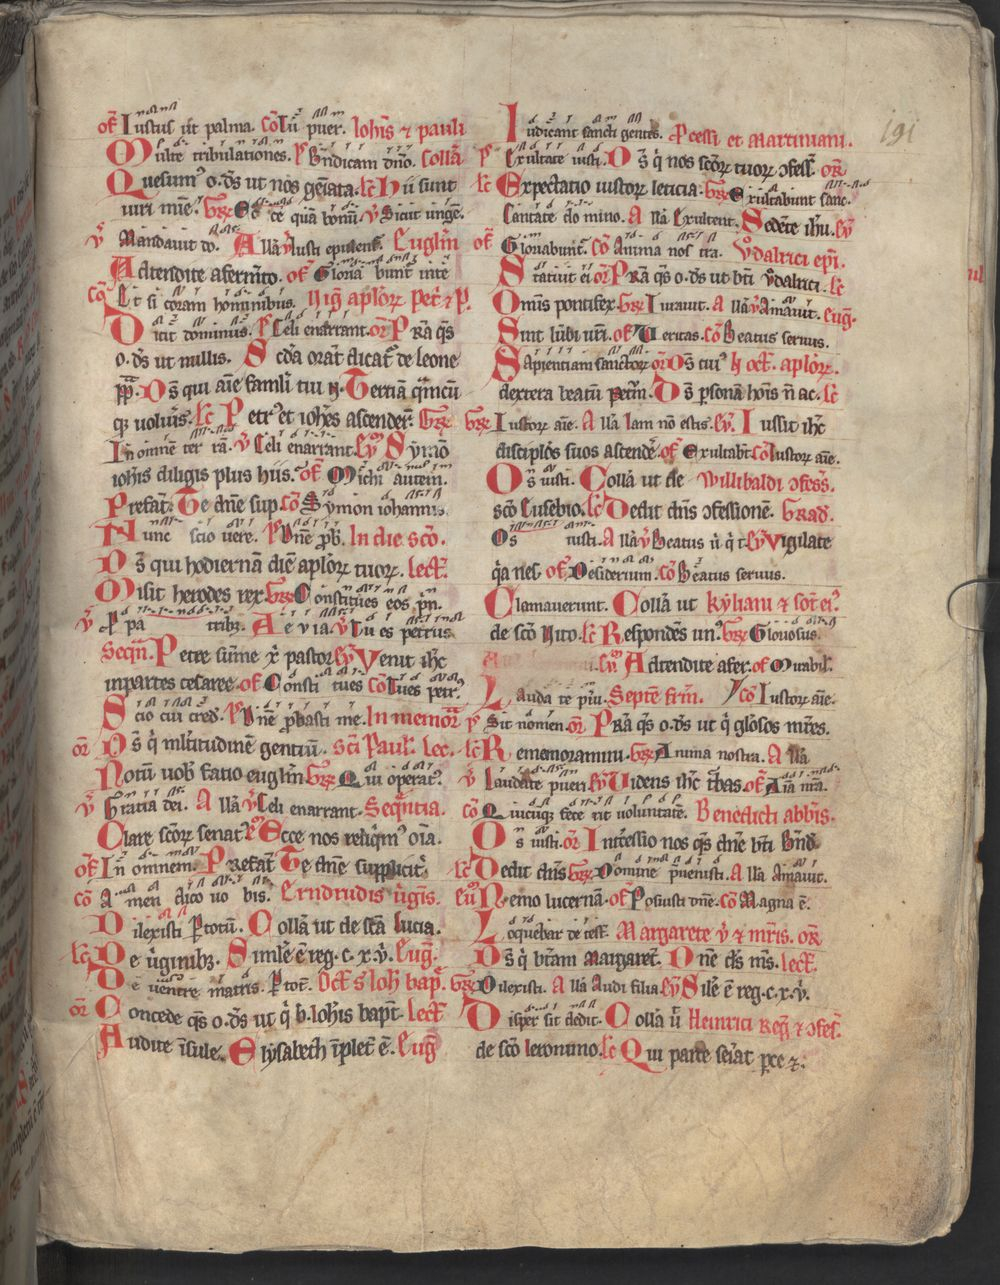 of̄ Iustus ut palma. cō Tū puer. Ioh̄is ⁊ pauli
Multe tribulationes. p̄ Bn̄dicam dn̄o. Collā
Quesum⁹ o. ds̄ ut nos gēata. lc̄ Hii sunt
uiri mīe. Grꝫ Ecē quā bonū. v̄ Sicut ungē.
v̄ Mandauit do. Allā v̄ Iusti epulent̄. Euglīm
Adtendite afermēto. of̄ Gloriabunt̄ in te
cō Et si coram hominibus. Uig̅ aplorꝝ Petri ⁊ P.
Dicit dominus. p̄ Celi enarrant. or̄ Prā qs̄
o. ds̄ ut nullis. Scd̄a orat̄ dicat̄ de leone
pp̄. Ds̄ qui aīe famuli tui
quoluīs. lc̄ Petr⁹ et ioh̄es ascendeꝝ. Grꝫ
In omnē terrā. v̄ Celi enarrant. Ev̄ Symō
ioh̄is diligis plus hiis. of̄ Michi autem.
Prefat̄. Te dn̄e sup. cō Symon iohannis.
Nunc scio uere. p̄ Dn̄e ꝓb. In die scō.
Ds̄ qui hodiernā diē aplorꝝ tuorꝝ. lect̄.
Misit herodes rex. Grꝫ Constitues eos pn̄.
v̄ P pa tribꝫ. Aeuia v̄ Tu es petrus
Seqn̄. Petre sum̄e xp̄i pastor ev̄ Venit ih̄c
inpartes cesaree. of̄ Constitues cō Tu es petr⁹
Scio cui cred. p̄ Dn̄e ꝓbasti me. In memor̄
or̄ Ds̄ q̄ mltitudinē gentiū. sc̄i Pauli. lec.
Notū uob̄ fatio euglīm Grꝫ Qui operat⁹
v̄ Gratia dei. Allā v̄ Celi enarrant. Sequn̄tia.
Clare scōrꝝ senat⁹ ev̄ Ecce nos reliqm̄⁹ oīa.
of̄ In omnem. Prefat̄ Te dn̄e supplicit̄
cō Amen dico uobis. Erndrudis ūgīs.
Dilexisti p̄totū. Collā ut de sc̄a lucia.
lc̄ De ūginibꝫ. Simile ē reg. c. x. v̄. Eug̅.
De uentre matris. p̄tot̄. Oct̄ s̄ Ioh̄ bap̄. Grꝫ
or̄ Concede qs̄ o. ds̄ ut q̄ b. Ioh̄is bapt̄. Lect̄
Audite īsule. Elysabeth īplet̄ ē. Eug̅
Iudicant sancti gentes. Pcessi et Martiniani.
p̄ Exultate iusti. Ds̄ q̄ nos scōrꝝ tuorꝝ ꝯfess̄ or̄
lc̄ Expectatio iustorꝝ leticia. Grꝫ Exultabunt sanc.
Cantate domino. Allā Exultent. Sedēte ihū. ev̄
of̄ Gloriabunt̄. cō Anima nostra. Vdalrici epī.
Statuit ei or̄ Prā qs̄ o. ds̄ ut bt̄i Vdalrici. lc̄
Omīs pontifex. Grꝫ Iurauit. Allā v̄ Amauit. eug̅.
Sint lūbi urī. of̄ Veritas. cō Beatus seruus.
Sapientiam sanctorꝝ or̄ Ds̄ cui⁹ In oct̄. aplorꝝ.
dextera beatū petrū. Ds̄ psonā hoīs n̄ ac. lc̄
Grꝫ Iustorꝝ aīe. Allā Iam nō estis. ev̄. Iussit ih̄c
discipl̄os suos ascendē. of̄ Exultabt̄. cō Iustorꝝ aīe.
Ds̄ iusti. Collā ut de Willibaldi ꝯfess̄.
scō Eusebio. lc̄ Dedit dn̄s ꝯfessionē. Grad̄.
Os iusti. Allā v̄ Beatus ū q̄ t ev̄ Vigilate
q̄a nes. of̄ Desiderium. cō Beatus seruus.
Clamauerunt. Collā ut Kyliani ⁊ soc̄ ei⁹
de scō Uito. lc̄ Respondēs un⁹. Grꝫ Gloriosus.
ev̄ Adtendite afer. of̄ Mirabil̄.
Lauda te pūi. Septē frm̄. cō Iustorꝝ aīe.
p̄ Sit nomen. or̄ Prā qs̄ o. ds̄ ut q̄ glōsos mr̄es.
lc̄ Rememoramini. Grꝫ Anima nostra. Allā
v̄ Laudate pueri ev̄ Videns ih̄c t̄bas. of̄ Aīa nr̄a.
cō Quicūqꝫ fecerit uoluntatē. Benedicti abbīs.
Os iusti. or̄ Intcessio nos qs̄ dn̄e bt̄i Bn̄d
lc̄ Dedit dn̄s Grꝫ Domine preuenisti. Allā Amauit.
eu̅ Nemo lucernā. of̄ Posuisti dn̄e. cō Magna ē.
Loquebar de test̄. Margarete v̄ ⁊ mr̄is. or̄
Ds̄ q̄ bt̄am Margaret̄. Dn̄e ds̄ m̄s. lect̄.
Grꝫ Dilexisti. Allā Audi filia ev̄ Silē ē reg. c. x. v̄.
Dispersit dedit. Collā ū Heinrici Reg̅ ⁊ ꝯfes̄.
de scō Ieronimo. lc̄ Qui parce seīat pce ⁊.
191